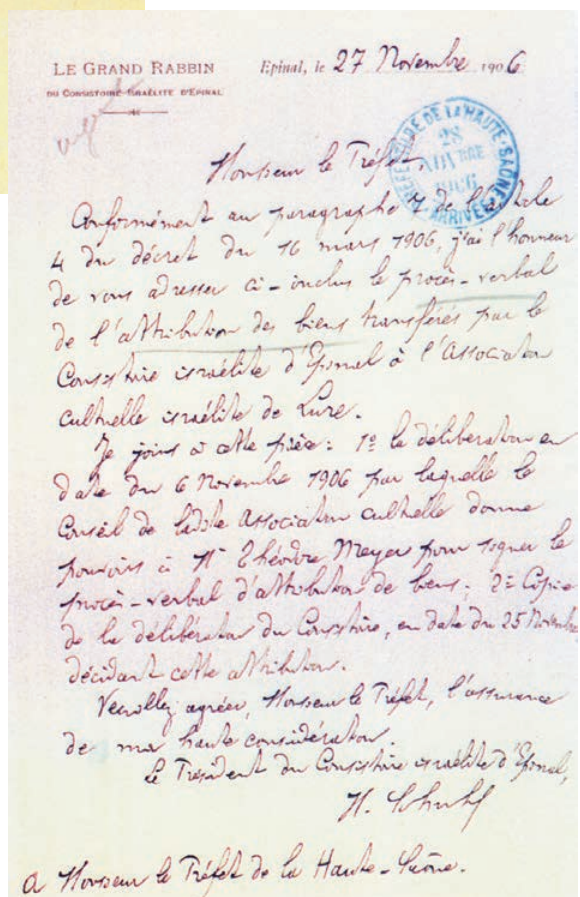 LE GRAND RABBIN
DU CONSISTOIRE ISRAÉLITE D'EPINAL
Epinal, le 27 Novembre 1906
PRÉFECTURE DE LA HAUTE-SAÔNE
28
NOVBRE
1906
ARRIVÉE
Monsieur le Préfet,
Conformément au paragraphe de l'article
4 du décret du 16 mars 1906, j'ai l'honneur
de vous adresser ci-inclus le procès-verbal
de l'attribution des biens transférés par le
Consistoire israélite d'Epinal à l'Association
cultuelle israélite de Lure.
Je joins à cette pièce : 1º la délibération en
date du 6 Novembre 1906 par laquelle le
Conseil de ladite Association cultuelle donne
pouvoirs à Mr Théodre Meyer pour signer le
procès-verbal d'attribution de biens ; 2º Copie
de la délibération du Consistoire, en date du 25 Novembre
décidant cette attribution.
Veuillez agréer, Monsieur le Préfet, l'assurance
de ma haute considération.
Le Président du Consistoire israélite d'Epinal,
A Monsieur le Préfet de la Haute-Saône.